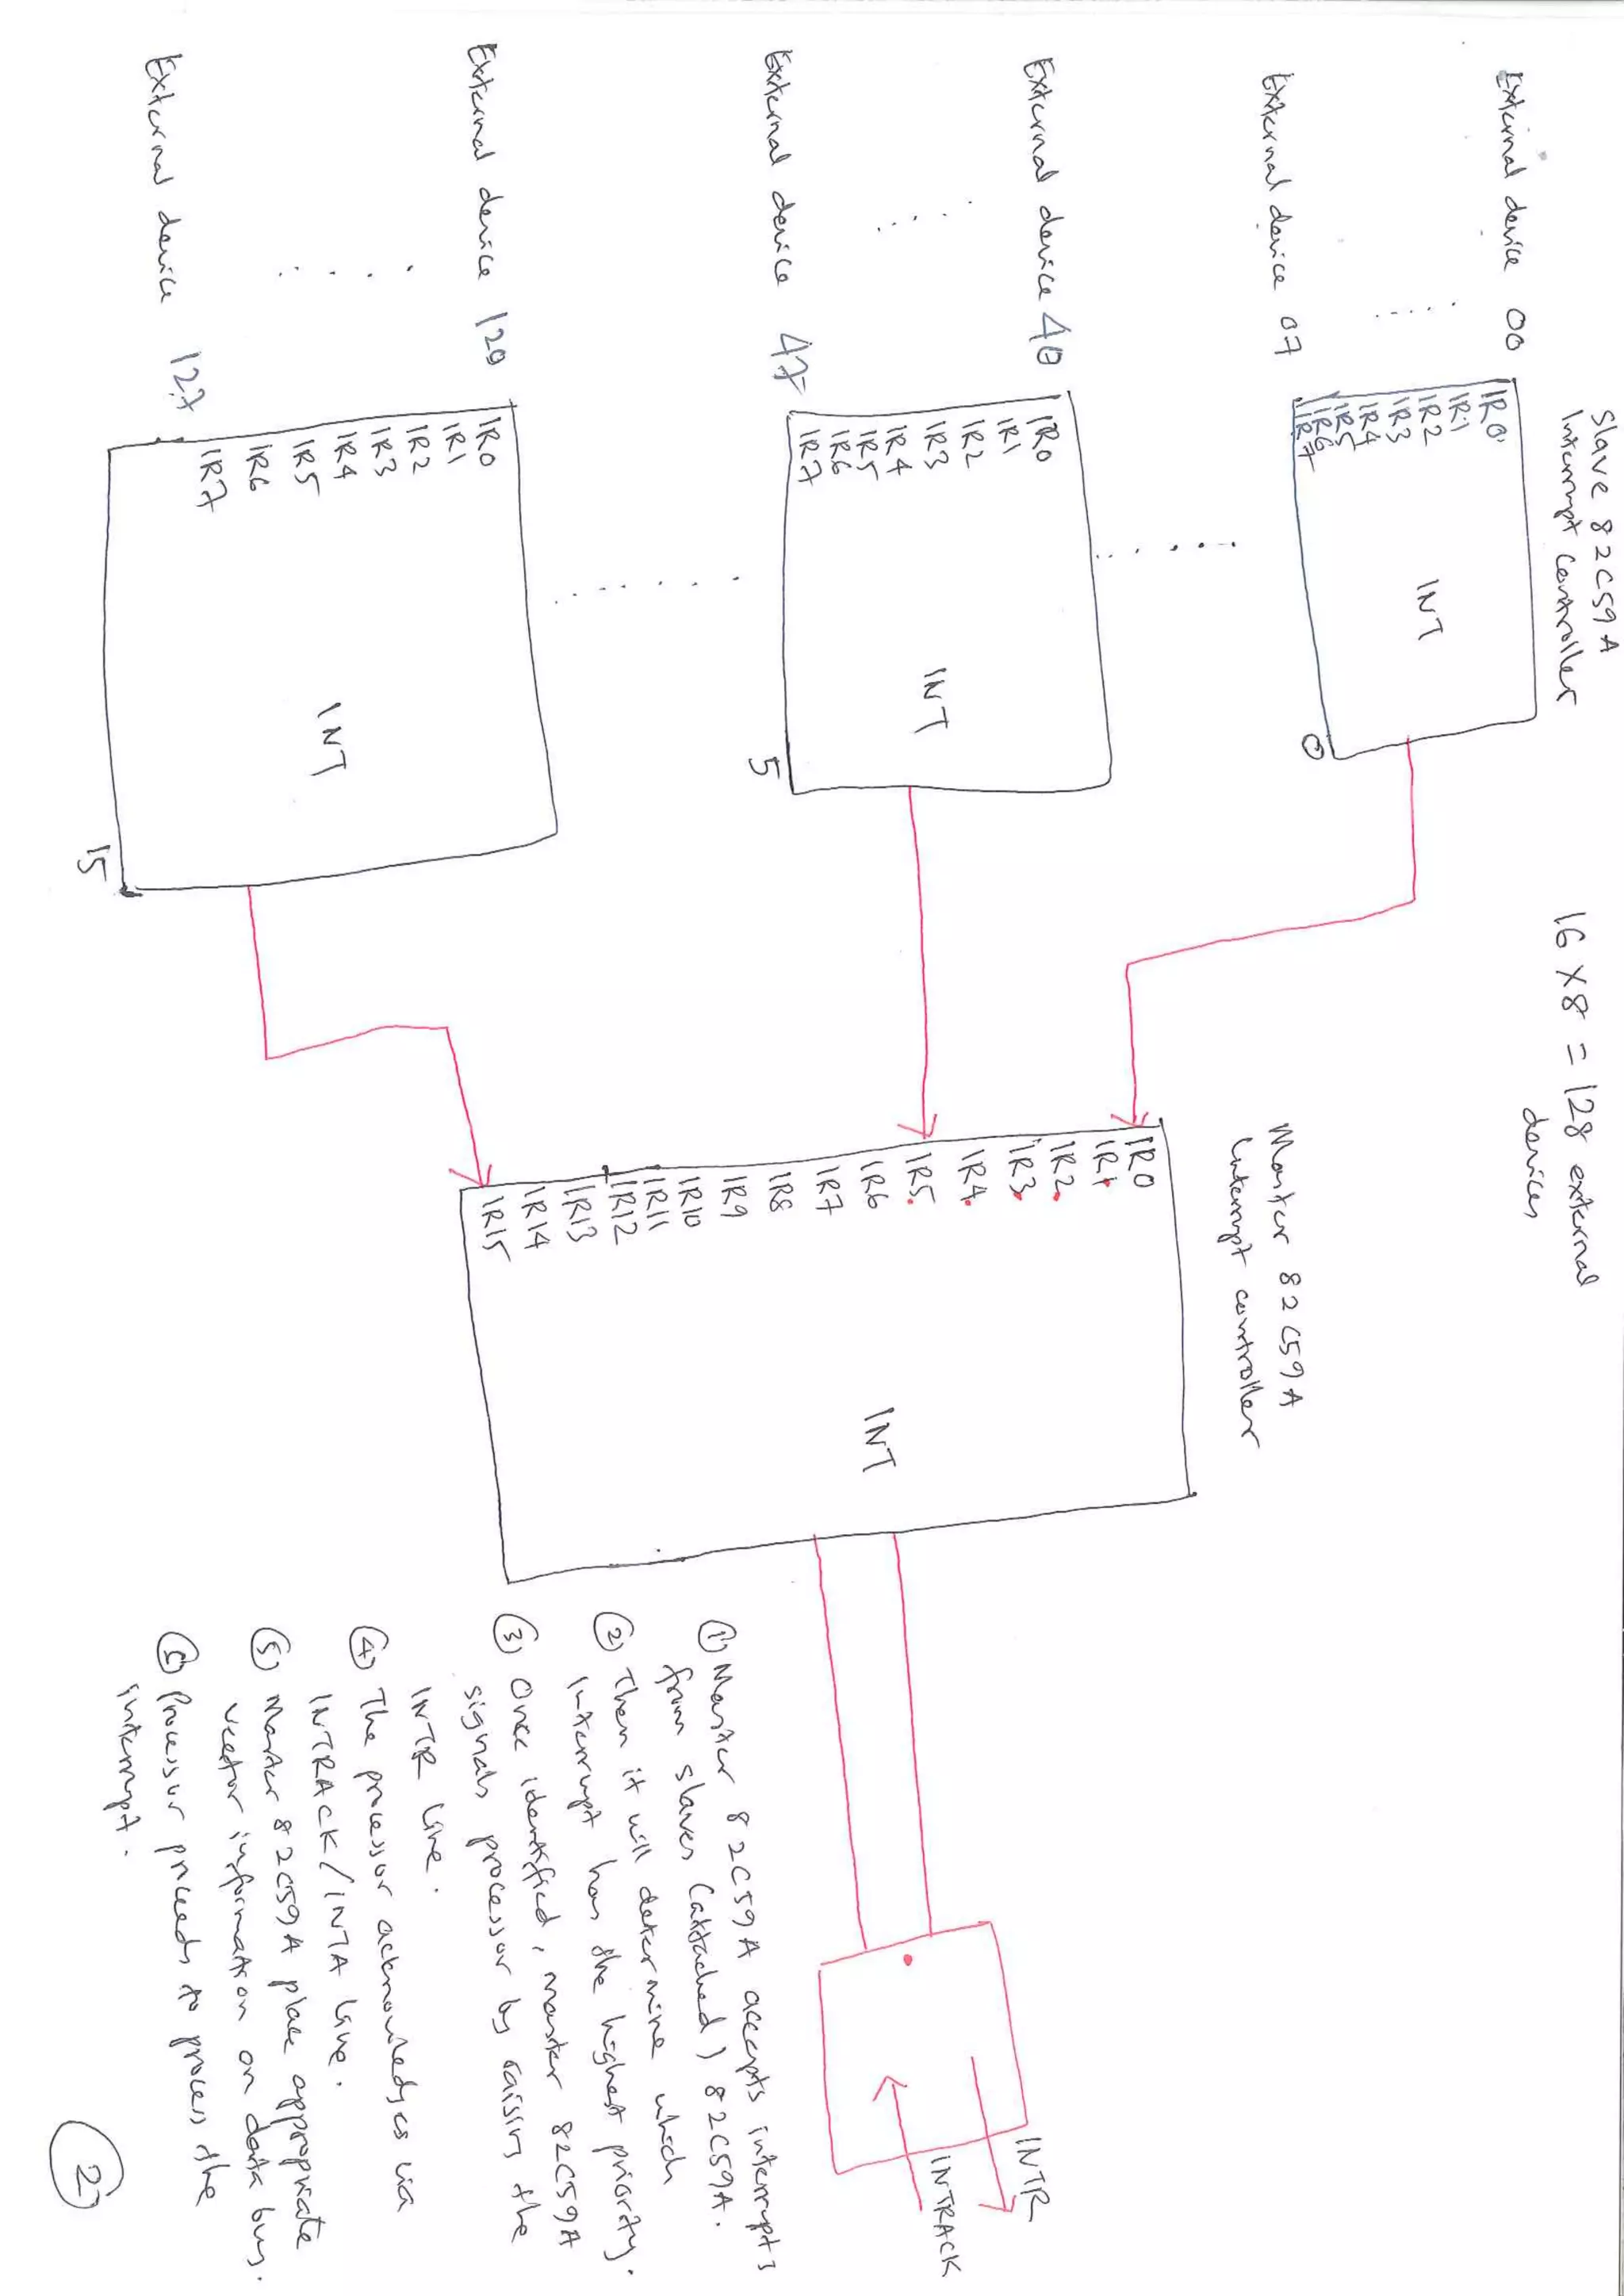 Slave 82C59A
Interrupt Controller
16 X 8 = 128 external
devices
External device 00
.....
External device 07
IR0
IR1
IR2
IR3
IR4
IR5
IR6
IR7
INT
0
External device 40
.....
External device 47
IR0
IR1
IR2
IR3
IR4
IR5
IR6
IR7
INT
5
External device 120
.....
External device 127
IR0
IR1
IR2
IR3
IR4
IR5
IR6
IR7
INT
15
Master 82C59A
Interrupt controller
IR0
IR1
IR2
IR3
IR4
IR5
IR6
IR7
IR8
IR9
IR10
IR11
IR12
IR13
IR14
IR15
INT
INTR
INTRACK
① Master 82C59A accepts interrupts
from slaves (attached) 82C59A.
② Then it will determine which
interrupt has the highest priority.
③ Once identified, master 82C59A
signals processor by raising the
INTR line.
④ The processor acknowledges via
INTRACK/INTA line.
⑤ Master 82C59A place appropriate
vector information on data bus.
⑥ Processor proceeds to process the
interrupt.
2